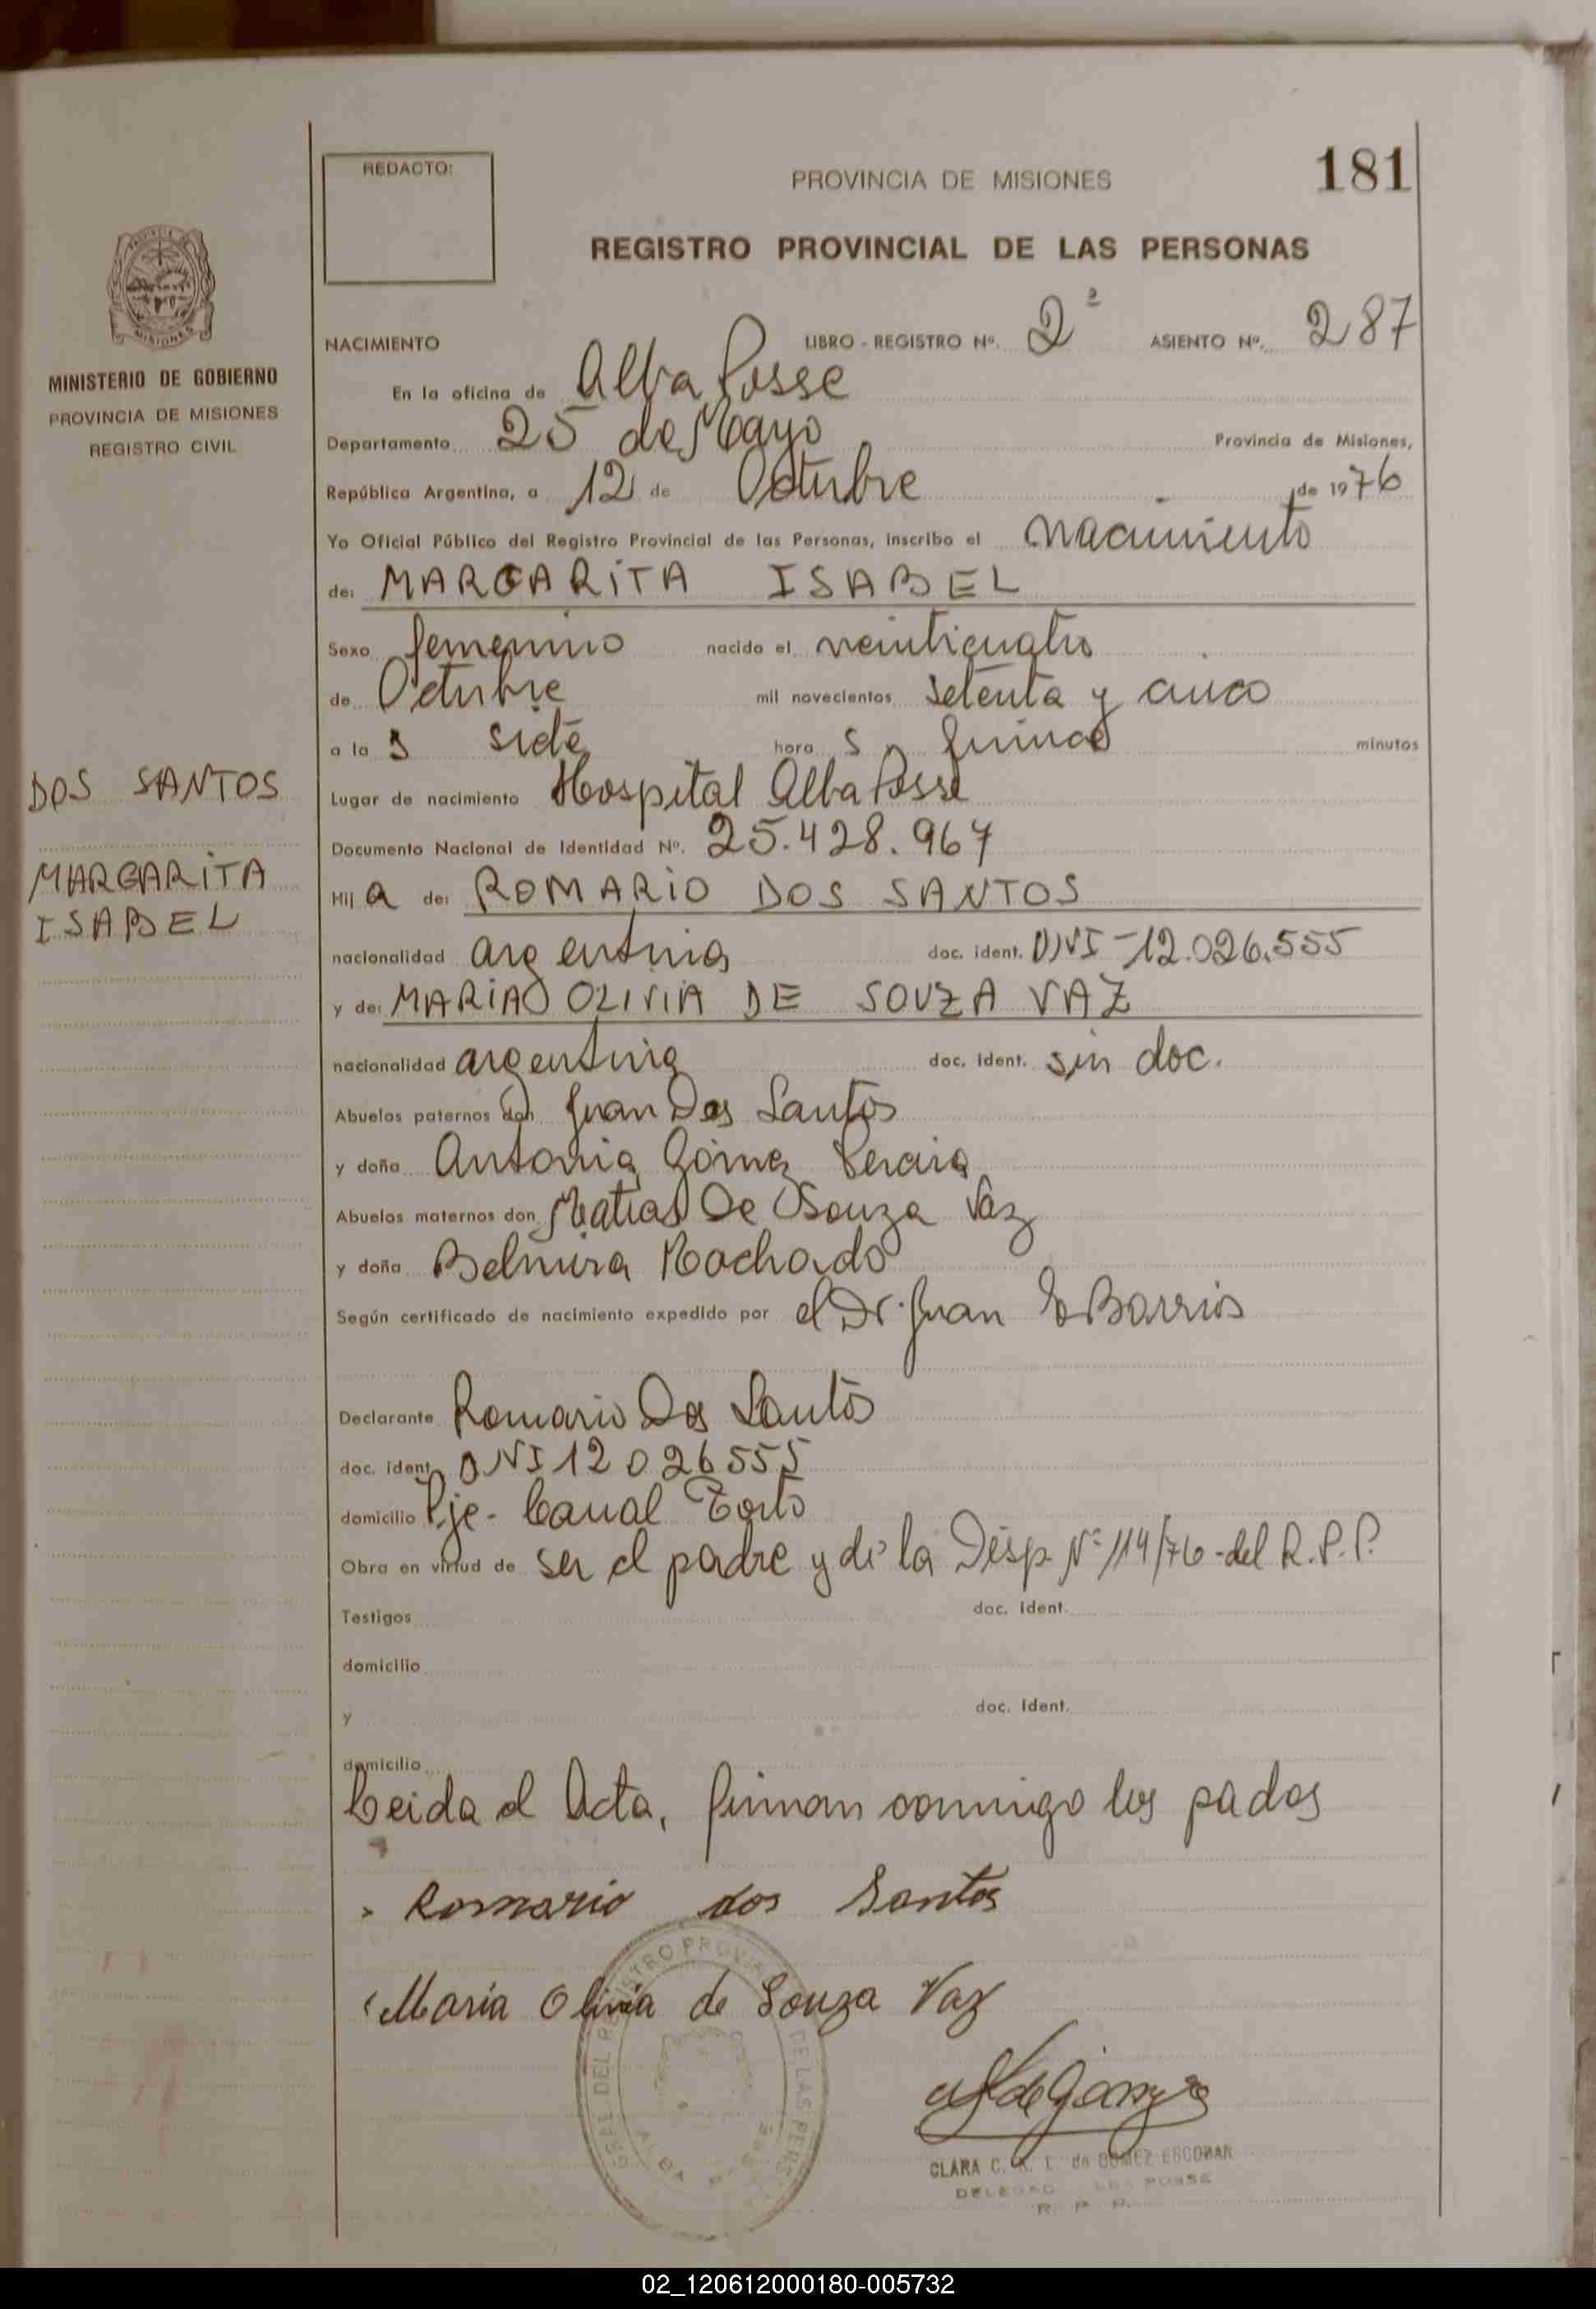 REDACTO:
PROVINCIA DE MISIONES
181
REGISTRO PROVINCIAL DE LAS PERSONAS
MISIONES
MINISTERIO DE GOBIERNO
PROVINCIA DE MISIONES
REGISTRO CIVIL
NACIMIENTO LIBRO - REGISTRO Nº. 2º ASIENTO Nº. 287
En la oficina de Alba Posse
Departamento 25 de Mayo Provincia de Misiones,
República Argentina, a 12 de Octubre de 1976
Yo Oficial Público del Registro Provincial de las Personas, inscribo el nacimiento
de: MARGARITA ISABEL
Sexo femenino nacido el veinticuatro
de Octubre mil novecientos setenta y cinco
a la s siete hora s y quince minutos
DOS SANTOS
MARGARITA
ISABEL
Lugar de nacimiento Hospital Alba Posse
Documento Nacional de Identidad Nº. 25.428.967
Hij a de: ROMARIO DOS SANTOS
nacionalidad argentina doc. ident. DNI-12.026.555
y de: MARIA OLIVIA DE SOUZA VAZ
nacionalidad argentina doc. ident. sin doc.
Abuelos paternos don Juan Dos Santos
y doña Antonia Gómez
Abuelos maternos don Matias De Souza Vaz
y doña Belmira Machado
Según certificado de nacimiento expedido por el Dr. Juan Barrios
Declarante Romario Dos Santos
doc. ident. DNI 12 026 555
domicilio Pje. Canal Torto
Obra en virtud de ser el padre y de la Disp. Nº 114/76 - del R.P.P.
Testigos doc. ident.
domicilio
y doc. ident.
domicilio
Leida el Acta, firman conmigo los pados
Romario dos Santos
Maria Olivia de Souza Vaz
CLARA C. de GOMEZ ESCOBAR
R. P. P.
02_120612000180-005732